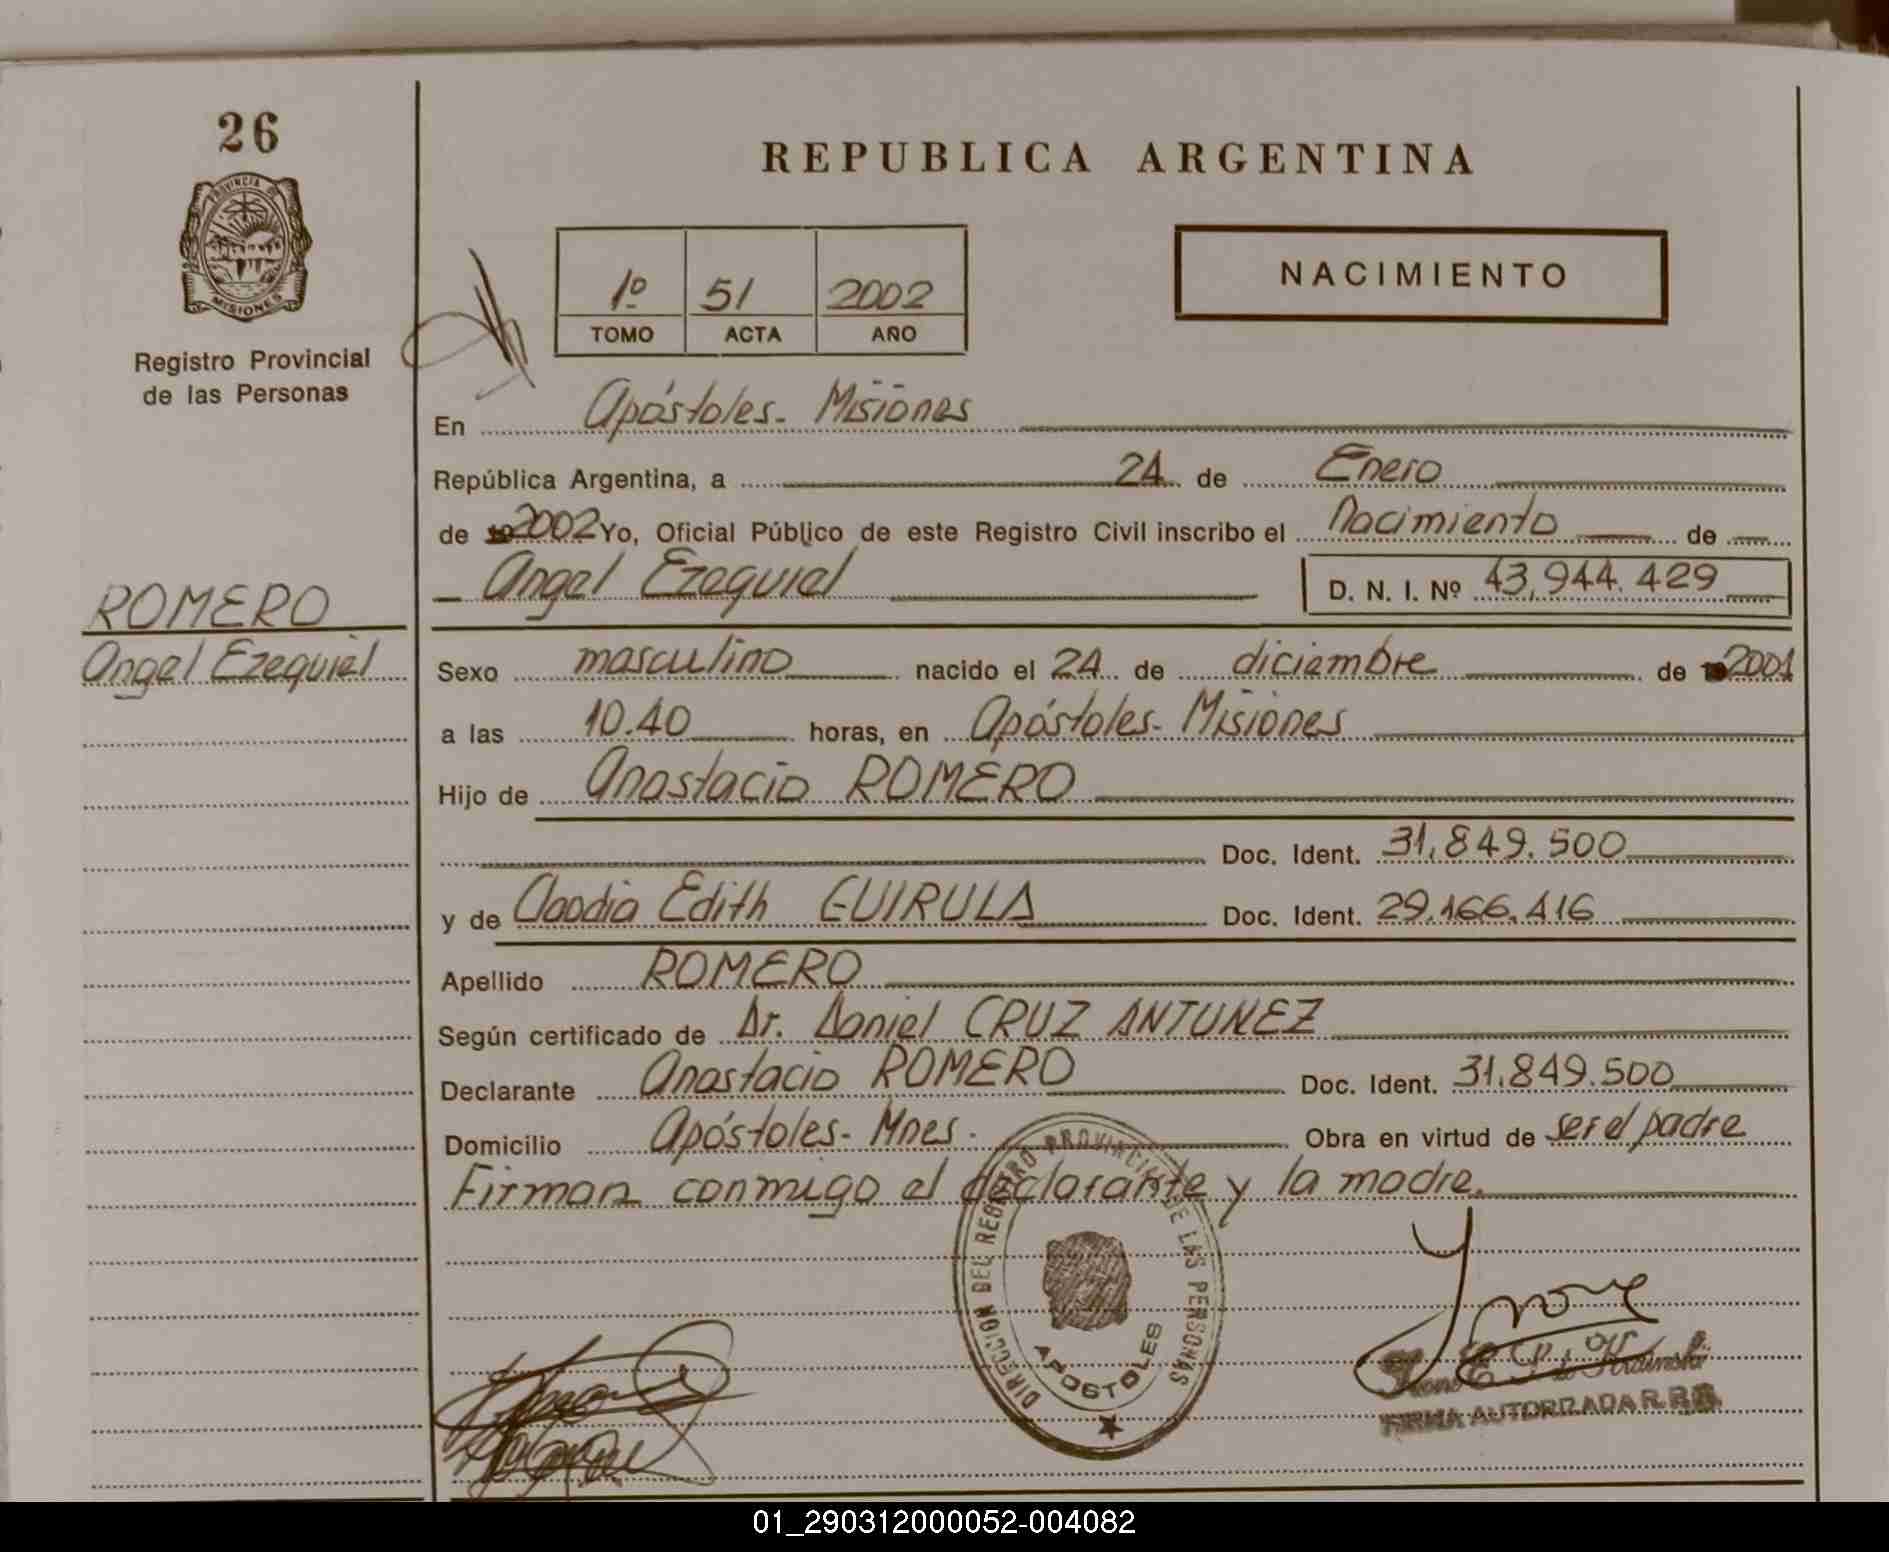 26
PROVINCIA DE
MISIONES
Registro Provincial
de las Personas
REPUBLICA ARGENTINA
NACIMIENTO
1º 51 2002
TOMO ACTA AÑO
En Apóstoles- Misiones
República Argentina, a 24 de Enero
de 2002 Yo, Oficial Público de este Registro Civil inscribo el Nacimiento de
Angel Ezequiel D. N. I. Nº 43,944.429
ROMERO
Angel Ezequiel
Sexo masculino nacido el 24 de diciembre de 2001
a las 10.40 horas, en Apóstoles- Misiones
Hijo de Anastacio ROMERO
Doc. Ident. 31.849.500
y de Claudia Edith GUIRULA Doc. Ident. 29.166.416
Apellido ROMERO
Según certificado de Dr. Daniel CRUZ ANTUNEZ
Declarante Anastacio ROMERO Doc. Ident. 31.849.500
Domicilio Apóstoles- Mnes. Obra en virtud de ser el padre
Firman conmigo el declarante y la madre.
DIRECCION DEL REGISTRO PROVINCIAL DE LAS PERSONAS
APOSTOLES
FIRMA AUTORIZADA R.P.P.
01_290312000052-004082